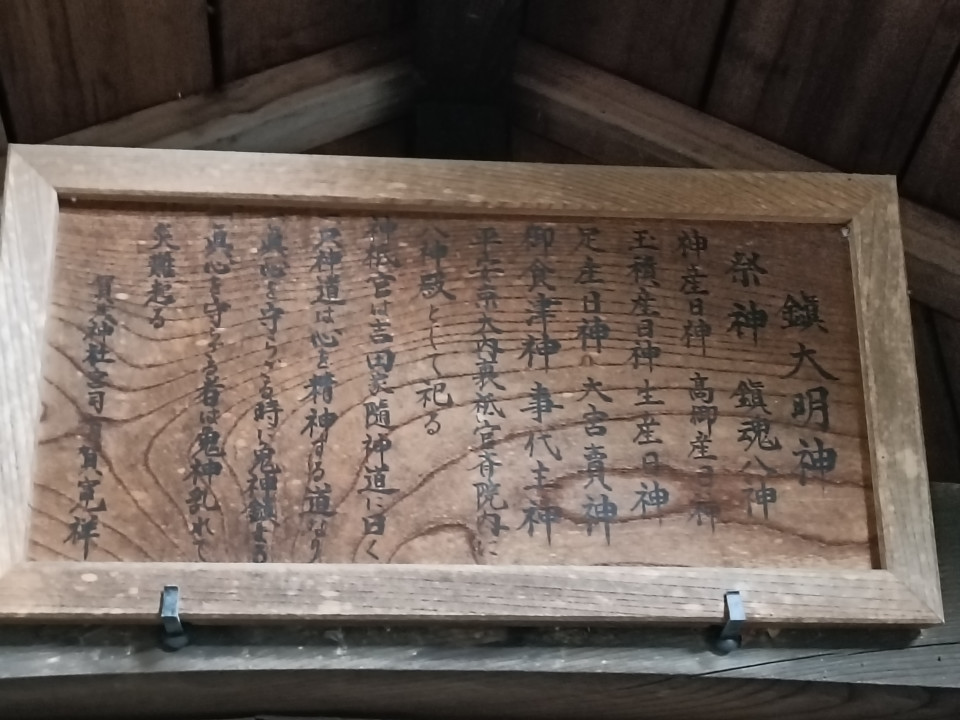 鎮大明神
祭神 鎮魂八神
神産日神 高御産日神
玉積産日神 生産日神
足産日神 大宮賣神
御食津神 事代主神
平安京大内裏祇官斉院内に
八神殿として祀る
神祇官は吉田家隨神道に曰く
只神道は心を精神する道なり
眞心を守らざる時に鬼神鎮まる
眞心を守らざる者は鬼神乱れて
災難起る
神社宮司